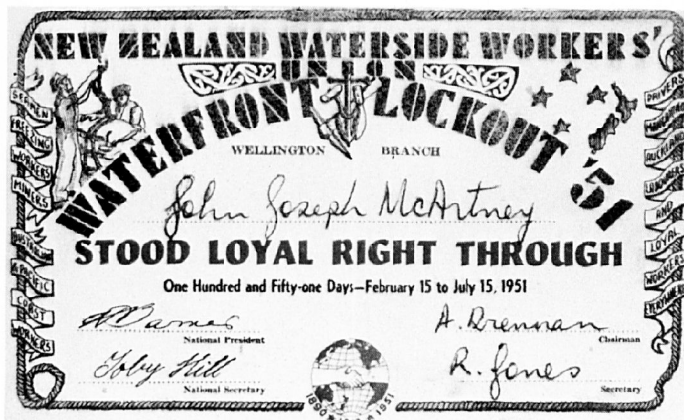 NEW ZEALAND WATERSIDE WORKERS'
UNION
WATERFRONT LOCKOUT '51
WELLINGTON BRANCH
John Joseph McArtney
STOOD LOYAL RIGHT THROUGH
One Hundred and Fifty-one Days—February 15 to July 15, 1951
H Barnes
A. Drennan
National President
Chairman
Toby Hill
R. Jones
National Secretary
Secretary
1890 1951
SEAMEN
FREEZING
WORKERS
MINERS
AUSTRALIAN
& PACIFIC
COAST
WORKERS
DRIVERS
AUCKLAND
LABOURERS
AND
LOYAL
WORKERS
EVERYWHERE